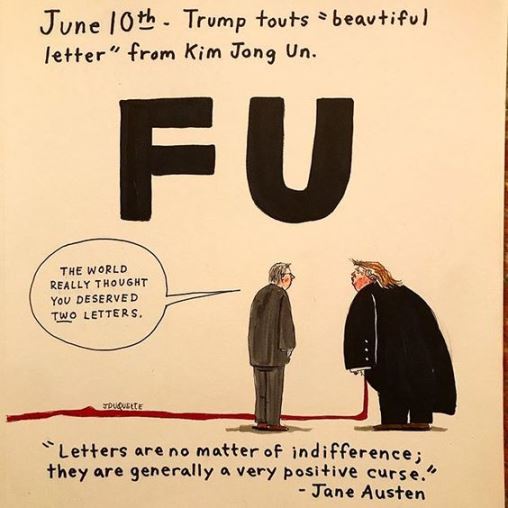 June 10th - Trump touts "beautiful
letter" from Kim Jong Un.
FU
THE WORLD
REALLY THOUGHT
YOU DESERVED
TWO LETTERS.
JDUQUETTE
"Letters are no matter of indifference;
they are generally a very positive curse."
- Jane Austen